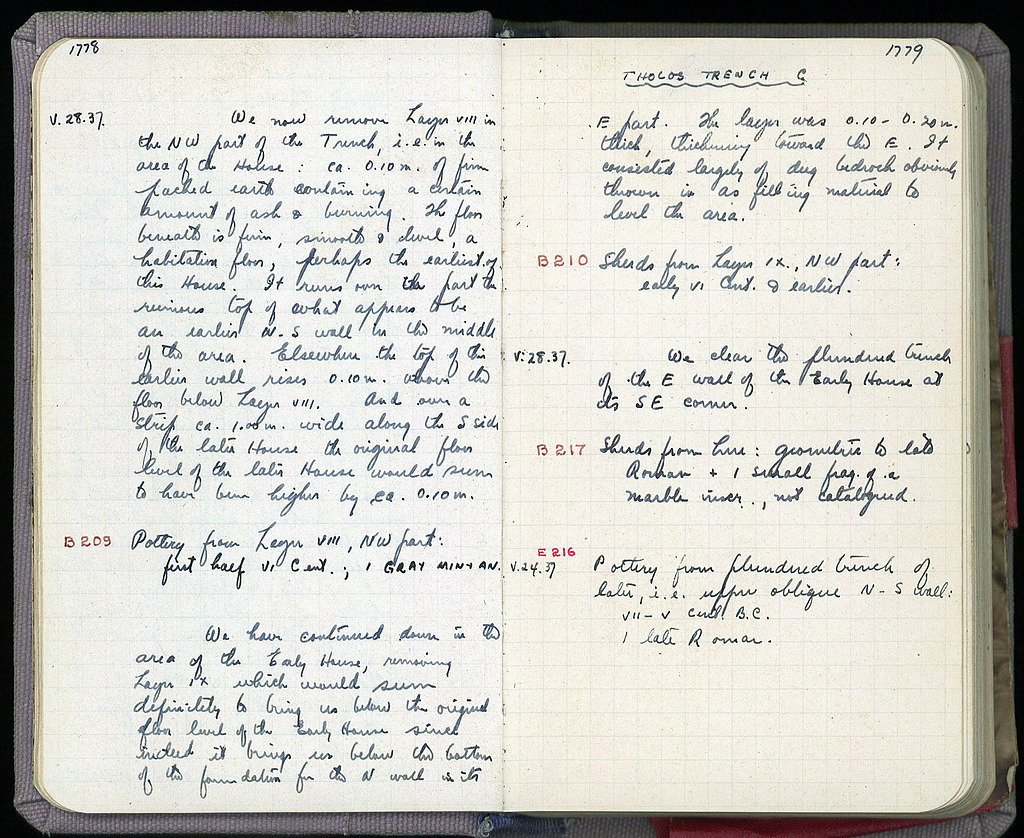 1778
V.28.37. We now remove Layer VIII in
the NW part of the Trench, i.e. in the
area of the House: ca. 0.10 m. of firm
packed earth containing a certain
amount of ash & burning. The floor
beneath is firm, smooth & level, a
habitation floor, perhaps the earliest of
this House. It runs over the part the
ruinous top of what appears to be
an earlier N-S wall in the middle
of the area. Elsewhere the top of this
earlier wall rises 0.10 m. above the
floor below Layer VIII. And over a
strip ca. 1.00 m. wide along the S side
of the later House the original floor
level of the later House would seem
to have been higher by ca. 0.10 m.
B 209 Pottery from Layer VIII, NW part:
first half VI Cent.; 1 GRAY MINYAN.
We have continued down in the
area of the Early House, removing
Layer IX which would seem
definitely to bring us below the original
floor level of the Early House since
indeed it brings us below the bottom
of the foundation for the N wall in its
1779
THOLOS TRENCH C
E part. The layer was 0.10 - 0.20 m.
thick, thickening toward the E. It
consisted largely of dug bedrock obviously
thrown in as filling material to
level the area.
B 210 Sherds from Layer IX, NW part:
early VI Cent. & earlier.
V.28.37. We clear the plundered trench
of the E wall of the Early House at
its SE corner.
B 217 Sherds from here: geometric to late
Roman + 1 small frag. of a
marble inscr., not catalogued.
E 216
V.24.37 Pottery from plundered trench of
later, i.e. upper oblique N-S wall:
VII-V Cent. B.C.
1 late Roman.